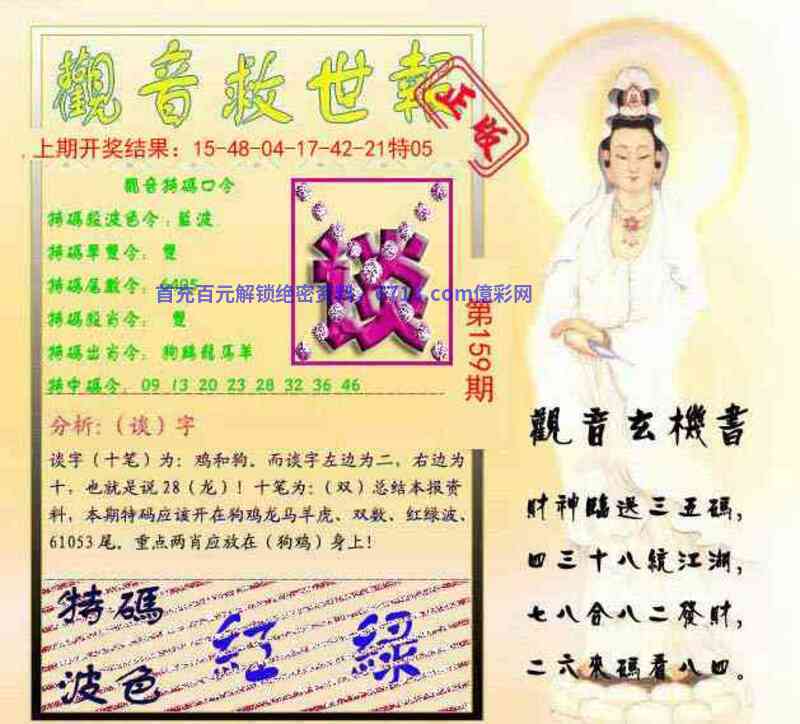 觀音救世報
正版
上期开奖结果：15-48-04-17-42-21特05
觀音特碼口令
特碼段波色令：藍波
特碼單雙令： 雙
特碼尾數令：6405
特碼段肖令： 雙
特碼出肖令：狗鷄龍馬羊
特中碼令．09 13 20 23 28 32 36 46
談
首充百元解锁绝密资料
.com億彩网
第159期
分析：（谈）字
谈字（十笔）为：鸡和狗。而谈字左边为二，右边为
十，也就是说28（龙）！十笔为：（双）总结本报资
料，本期特码应该开在狗鸡龙马羊虎、双数、红绿波、
61053尾。重点两肖应放在（狗鸡）身上！
特碼
波色
紅 綠
觀音玄機書
財神臨送三五碼，
四三十八統江湖，
七八合八二發財，
二六來碼看八四。